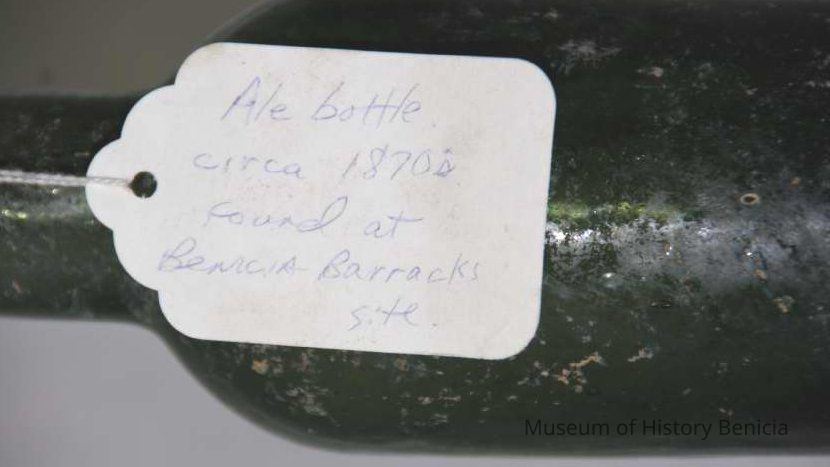 Ale bottle.
circa 1870s
found at
Benicia Barracks
site.
Museum of History Benicia